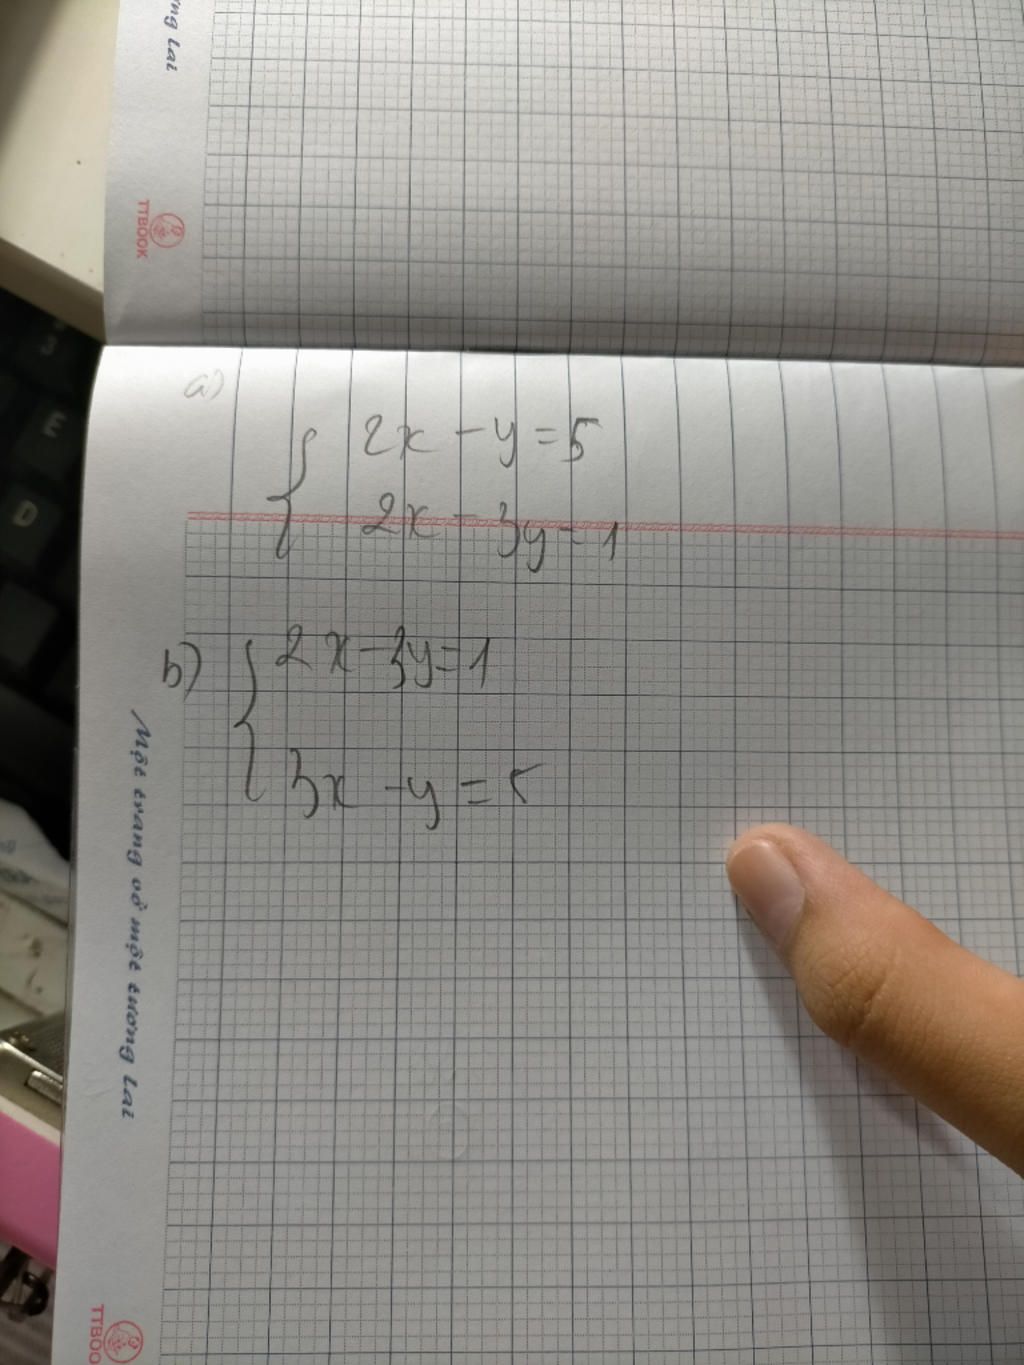 ng lai
TTBOOK
a)
2x - y = 5
2x - 3y = 1
b)
2x - 3y = 1
3x - y = 5
Một trang vở một tương lai
TTBOO
E
D
3